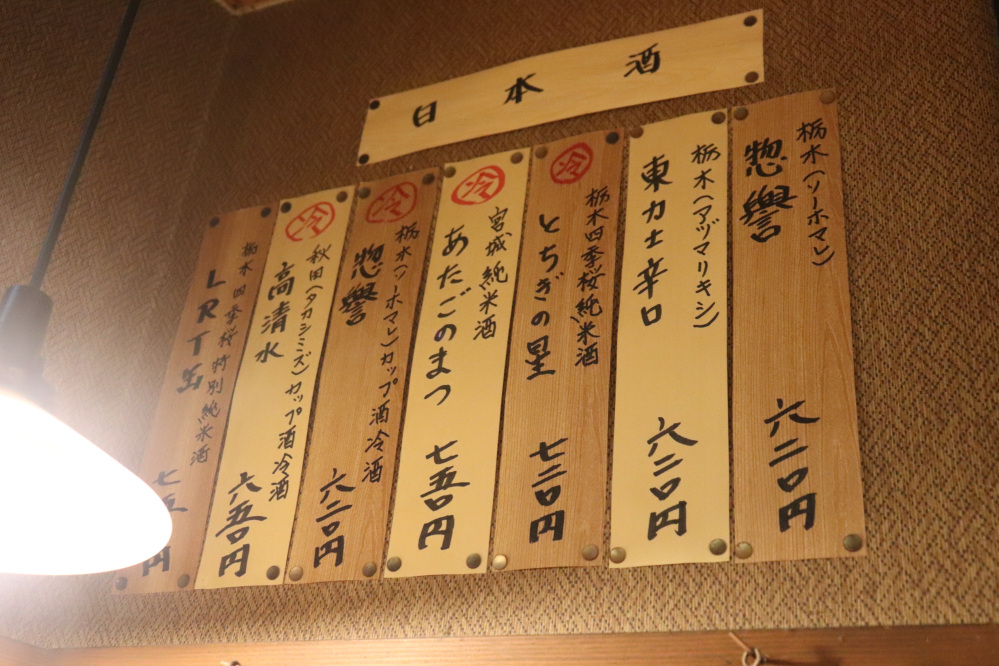 日本酒
栃木(ソーホマレ)
惣譽
六二〇円
栃木(アヅマリキシ)
東力士辛口
六二〇円
冷
栃木四季桜純米酒
とちぎの星
七二〇円
冷
宮城純米酒
あたごのまつ
七五〇円
冷
栃木(ソーホマレ)カップ酒冷酒
惣譽
六二〇円
冷
秋田(タカシミズ)カップ酒冷酒
高清水
六五〇円
栃木四季桜特別純米酒
LRT
円